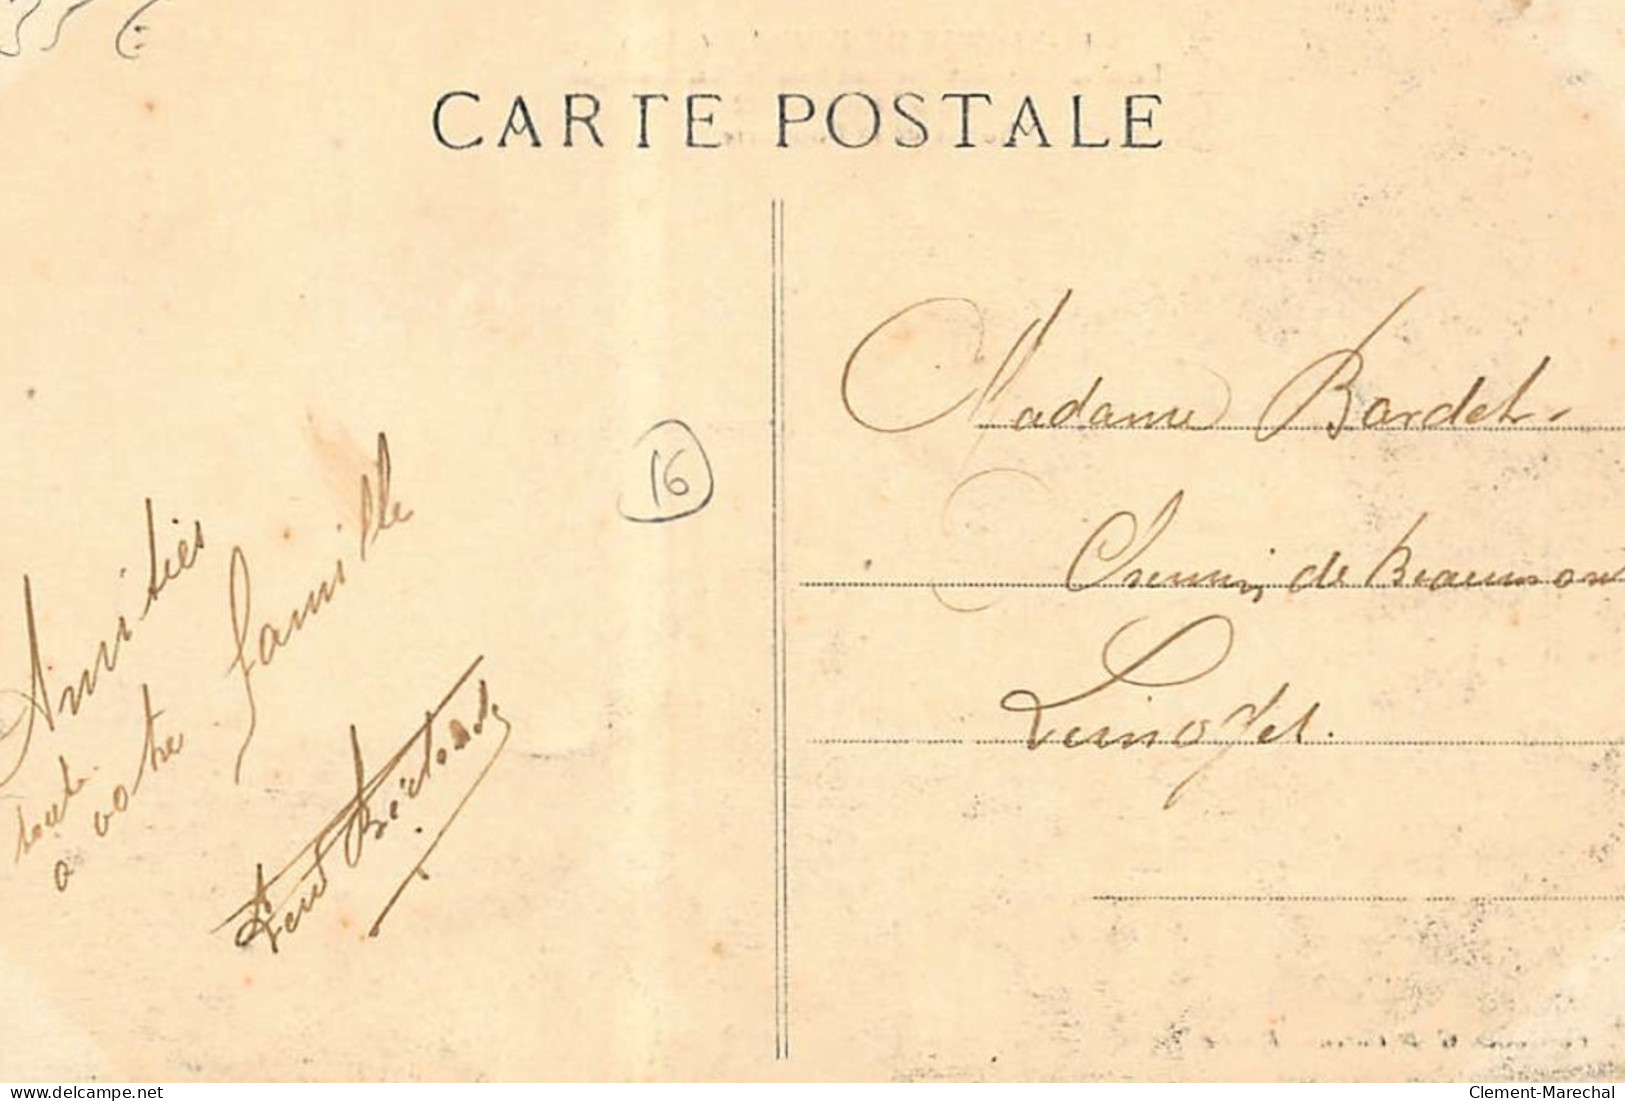 CARTE POSTALE
Amitiés
toute
a votre famille
16
Madame Bardet.
Chemin de Beaumon
Limoges.
delcampe.net
Clement-Marechal